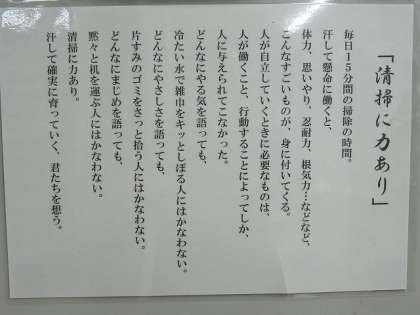 「清掃に力あり」
毎日１５分間の掃除の時間。
汗して懸命に働くと、
体力、思いやり、忍耐力、根気力…などなど、
こんなすごいものが、身に付いてくる。
人が自立していくときに必要なものは、
人が働くこと、行動することによってしか、
人に与えられてこなかった。
どんなにやる気を語っても、
冷たい水で雑巾をキッとしぼる人にはかなわない。
どんなにやさしさを語っても、
片すみのゴミをさっと拾う人にはかなわない。
どんなにまじめを語っても、
黙々と机を運ぶ人にはかなわない。
清掃に力あり。
汗して確実に育っていく、君たちを想う。